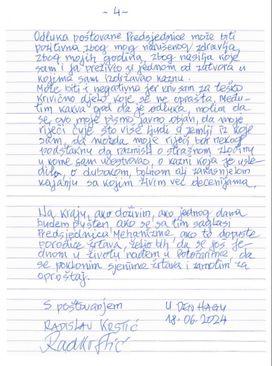 - 4 -
Odluka poštovane Predsjednice može biti
pozitivna zbog mog narušenog zdravlja,
zbog mojih godina, zbog nasilja koje
sam i ja preživio u jednom od zatvora u
kojima sam izdržavao kaznu.
Može biti i negativna jer krivim za teško
krivično djelo koje se ne oprašta. Među-
tim kakva god da je odluka, molim da
se ovo moje pismo javno objavi, da moje
riječi čuje što više ljudi u zemlji iz koje
sam, da možda moje riječi bar nekog
podstaknu da razmisli o strašnom zločinu
u kome sam učestvovao, o kazni koja je uslije-
dila, o dubokom, bolnom ali zakašnjelom
kajanju sa kojim živim već decenijama.
Na kraju, ako doživim, ako jednog dana
budem pušten, ako se sa tim saglasi
Predsjednica Mehanizma, ako to dopuste
porodice žrtava, želio bih da se još je-
dnom u životu nađem u Potočarima, da
se poklonim sjenima žrtava i zamolim za
oproštaj.
S poštovanjem U DEN HAAGU
RADISLAV KRSTIĆ 18.06.2024